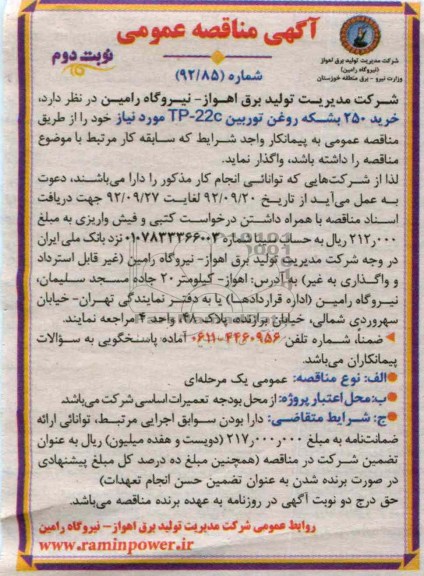 آگهی مناقصه عمومی
نوبت دوم
شماره (۹۲/۸۵)
شرکت مدیریت تولید برق اهواز
(نیروگاه رامین)
وزارت نیرو - برق منطقه خوزستان
شرکت مدیریت تولید برق اهواز- نیروگاه رامین در نظر دارد،
خرید ۲۵۰ بشکه روغن توربین TP-22c مورد نیاز خود را از طریق
مناقصه عمومی به پیمانکار واجد شرایط که سابقه کار مرتبط با موضوع
مناقصه را داشته باشد، واگذار نماید.
لذا از شرکت‌هایی که توانائی انجام کار مذکور را دارا می‌باشند، دعوت
به عمل می‌آید از تاریخ ۹۲/۰۹/۲۰ لغایت ۹۲/۰۹/۲۷ جهت دریافت
اسناد مناقصه با همراه داشتن درخواست کتبی و فیش واریزی به مبلغ
۲۱۲٫۰۰۰ ریال به حساب سیبا شماره ۰۱۰۷۸۳۳۳۶۶۰۰۳ نزد بانک ملی ایران
در وجه شرکت مدیریت تولید برق اهواز- نیروگاه رامین (غیر قابل استرداد
و واگذاری به غیر) به آدرس: اهواز- کیلومتر ۲۰ جاده مسجد سلیمان،
نیروگاه رامین (اداره قراردادها) یا به دفتر نمایندگی تهران- خیابان
سهروردی شمالی، خیابان برازنده، پلاک ۴۸، واحد ۴ مراجعه نمایند.
ضمناً، شماره تلفن ۴۴۶۰۹۵۶-۰۶۱۱ آماده پاسخگویی به سؤالات
پیمانکاران می‌باشد.
الف: نوع مناقصه: عمومی یک مرحله‌ای
ب: محل اعتبار پروژه: از محل بودجه تعمیرات اساسی شرکت می‌باشد.
ج: شرایط متقاضی: دارا بودن سوابق اجرایی مرتبط، توانائی ارائه
ضمانت‌نامه به مبلغ ۲۱۷٫۰۰۰٫۰۰۰ (دویست و هفده میلیون) ریال به عنوان
تضمین شرکت در مناقصه (همچنین مبلغ ده درصد کل مبلغ پیشنهادی
در صورت برنده شدن به عنوان تضمین حسن انجام تعهدات)
حق درج دو نوبت آگهی در روزنامه به عهده برنده مناقصه می‌باشد.
روابط عمومی شرکت مدیریت تولید برق اهواز- نیروگاه رامین
www.raminpower.ir